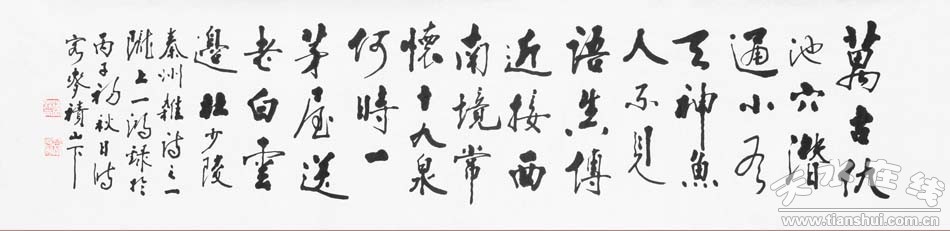 萬古仇
池穴潛
通小有
天神魚
人不見
語真傳
近接西
南境常
懷十九泉
何時一
茅屋送
老白雲
邊 杜少陵
秦州雜詩之一
隴上一鴻錄於
丙子初秋日時
客麥積山下
天水在线
www.tianshui.com.cn